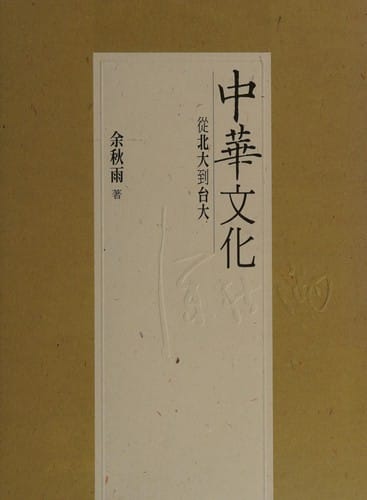 中華文化
從北大到台大
余秋雨 著